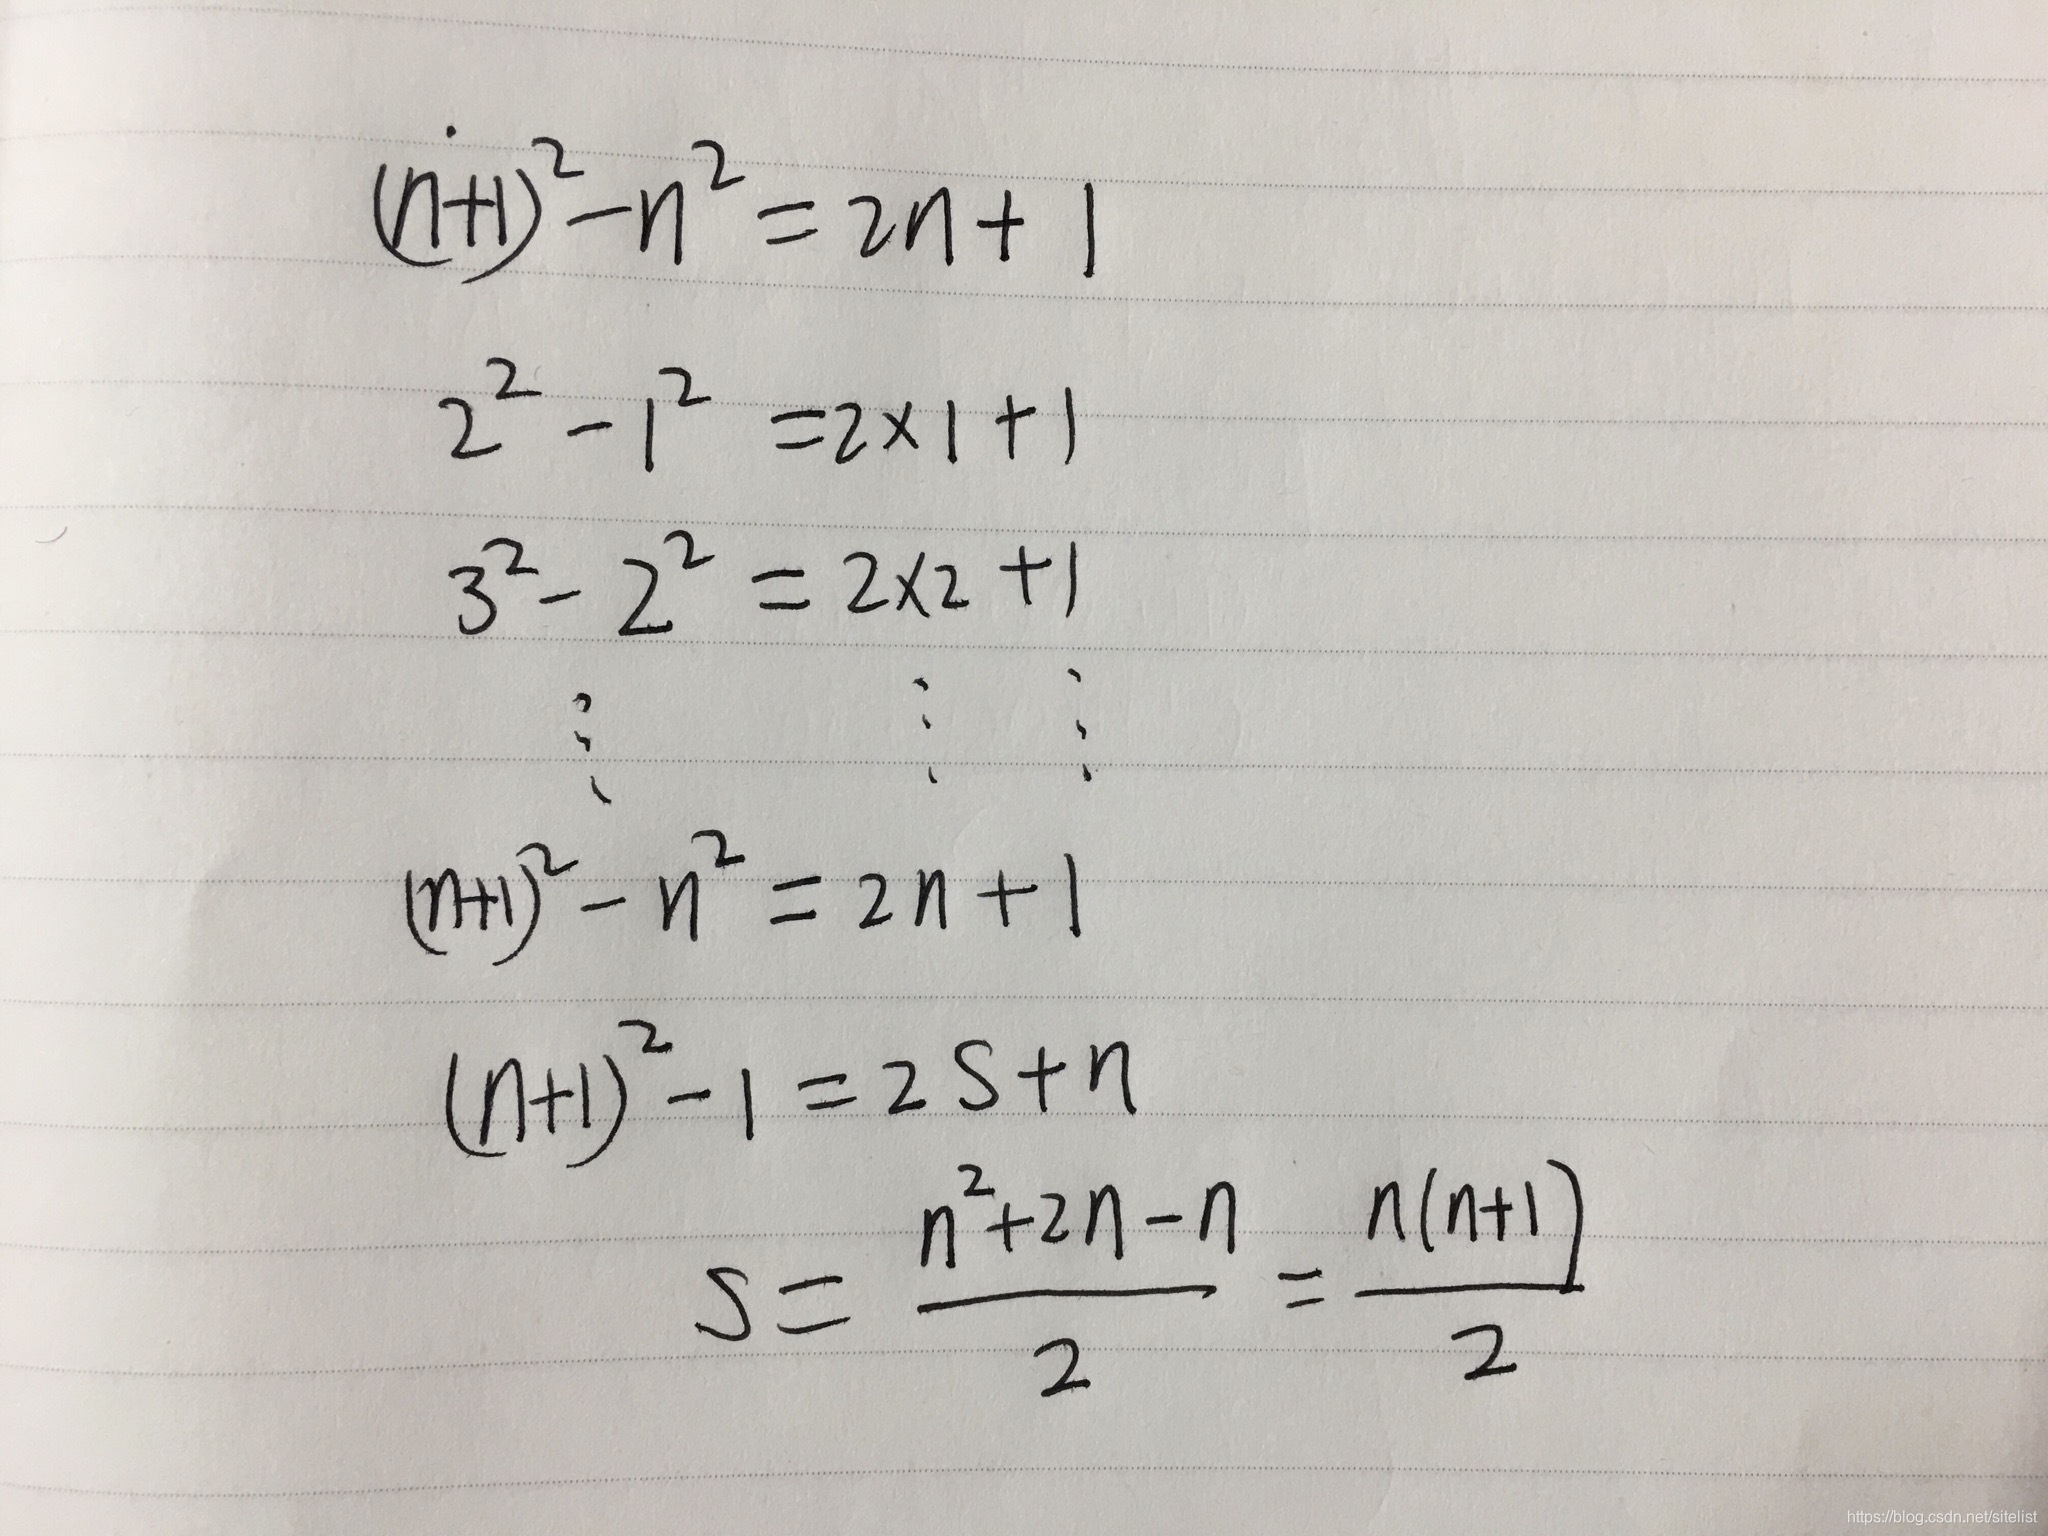 (n+1)² - n² = 2n + 1
2² - 1² = 2×1 + 1
3² - 2² = 2×2 + 1
⋮ ⋮ ⋮
(n+1)² - n² = 2n + 1
(n+1)² - 1 = 2S + n
S = (n² + 2n - n)/2 = n(n+1)/2
https://blog.csdn.net/sitelist